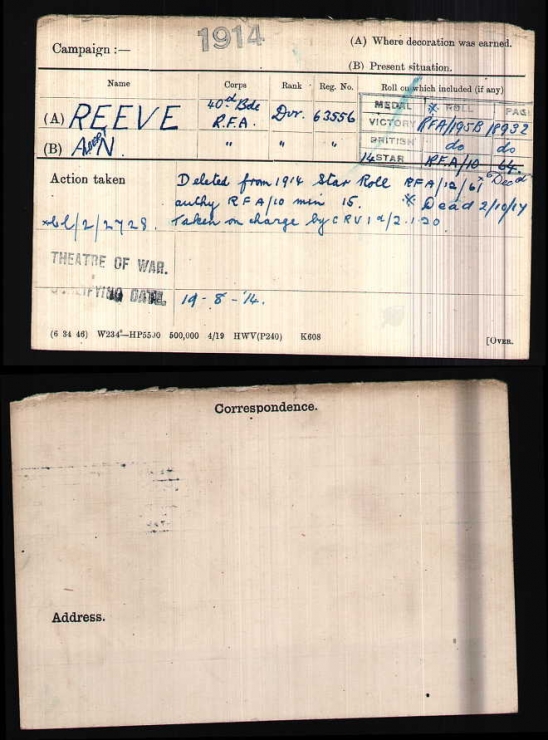 1914
Campaign :—
(A) Where decoration was earned.
(B) Present situation.
Name Corps Rank Reg. No. Roll on which included (if any)
MEDAL ROLL PAGE
(A) REEVE 40th Bde R.F.A. Dvr. 63556
VICTORY RFA/195B 18932
(B) N. " " "
BRITISH do do
14 STAR RFA/10 64
Action taken
Deleted from 1914 Star Roll RFA/12/61 Dec'd
authy RFA/10 min 15. Dead 2/10/17
Taken on charge by CRV
THEATRE OF WAR.
QUALIFYING DATE. 19-8-14.
(6 34 46) W234—HP5590 500,000 4/19 HWV(P240) K608
[OVER.
Correspondence.
Address.